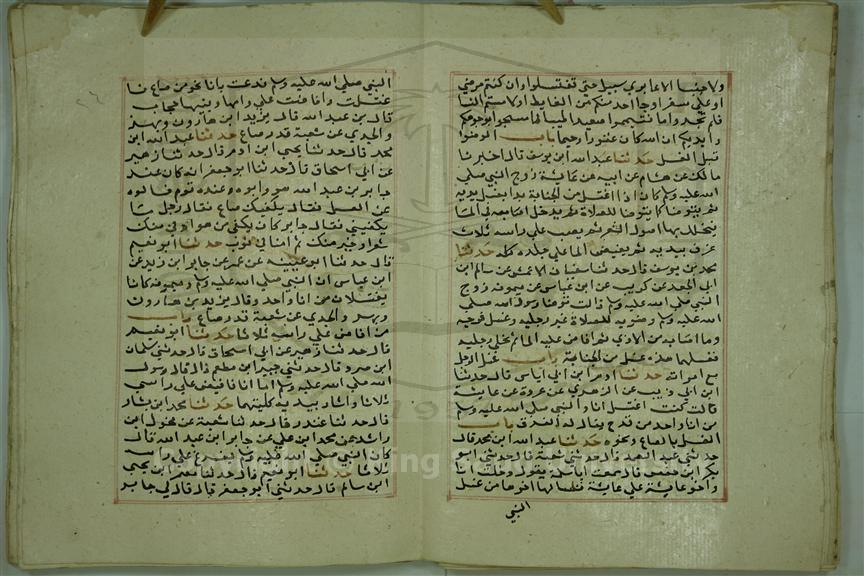 ولا جنبا الا عابري سبيل حتى تغتسلوا وان كنتم مرضي
او علي سفر او جا احد منكم من الغايط او لامستم النسا
فلم تجدوا ما فتيمموا صعيدا طيبا فامسحوا بوجوهكم
وايديكم ان الله كان عفوا رحيما باب الوضوا
قبل الغسل حدثنا عبد الله ابن يوسف قال اخبرنا
مالك عن هشام عن ابيه عن عايشة زوج النبي صلي
الله عليه وسلم كان اذا اغتسل من الجنابة بدا بغسل يديه
ثم يتوضا كما يتوضا للصلاة ثم يدخل اصابعه في الما
فيخلل بها اصول الشعر ثم يصب علي راسه ثلاث
غرف بيديه ثم يفيض الما علي جلده كله حدثنا
محمد بن يوسف قال حدثنا سفيان الاعمش عن سالم ابن
ابي الجعد عن كريب عن ابن عباس عن ميمونة زوج
النبي صلي الله عليه وسلم قالت توضا رسول الله صلي
الله عليه وسلم وضوءه للصلاة غير رجليه وغسل فرجه
وما اصابه من الاذي ثم افاض عليه الما ثم نحي رجليه
فغسلهما هذه غسل من الجنابة باب غسل الرجل
مع امراته حدثنا ادم ابن ابي اياس قال حدثنا
ابن ابي ذيب عن الزهري عن عروة عن عايشة
قالت كنت اغتسل انا والنبي صلي الله عليه وسلم
من انا واحد من قدح يقال له الفرق باب
الغسل بالصاع ونحوه حدثنا عبد الله ابن محمد قال
حدثني عبد الصمد قال حدثني شعبة قال حدثني ابو
بكر ابن حفص قال سمعت ابا سلمة يقول دخلت انا
واخو عايشة علي عايشة فسالها اخوها عن غسل
النبي
النبي صلي الله عليه وسلم فدعت بانا نحو من صاع فا
غتسلت وافاضت علي راسها وبينها حجاب
قال بن عبد الله قال يزيد ابن هارون وبهز
والجدي عن شعبة قدر صاع حدثنا عبد الله ابن
محمد قال حدثنا يحيي ابن ادم قال حدثنا زهير
عن ابي اسحاق قال حدثنا ابو جعفر انه كان عند
جابر بن عبد الله هو وابوه وعنده قوم فسالوه
عن الغسل فقال يكفيك صاع فقال رجل ما
يكفيني فقال جابر كان يكفي من هو اوفي منك
شعرا وخير منك ثم امنا في ثوب حدثنا ابو نعيم
قال حدثنا ابن عيينه عن عمر عن جابر ابن زيد عن
ابن عباس ان النبي صلي الله عليه وسلم وميمونة كانا
يغتسلان من انا واحد وقال يزيد بن هارون
وبهز والجدي عن شعبة قدر صاع باب
من افاض علي راسه ثلاثا حدثنا ابو نعيم
قال حدثنا زهير عن ابي اسحاق قال حدثني سليمان
ابن صرد قال حدثني جبير ابن مطعم قال قال رسول
الله صلي الله عليه وسلم اما انا فافيض علي راسي
ثلاثا واشار بيديه كلتيهما حدثنا محمد ابن بشار
قال حدثنا غندر قال حدثنا شعبة عن مخول ابن
راشد عن محمد ابن علي عن جابر ابن عبد الله قال
كان النبي صلي الله عليه وسلم يفرغ علي راسه
ثلاثا حدثنا ابو نعيم قال حدثنا معمر ابن يحيي
ابن سالم قال حدثني ابو جعفر قال قال لي جابر